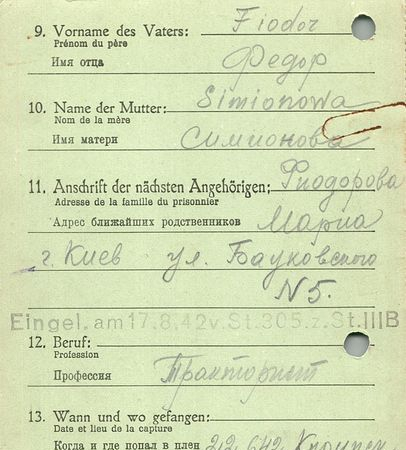 9. Vorname des Vaters: Fiodor
Prénom du père
Имя отца Федор
10. Name der Mutter: Simionowa
Nom de la mère
Имя матери Симионова
11. Anschrift der nächsten Angehörigen: Фиодорова
Adresse de la famille du prisonnier
Адрес ближайших родственников Мариа
г. Киев ул. Бауковского
N5.
Eingel. am 17.8.42 v. St. 305. z. St. IIIB
12. Beruf:
Profession
Профессия Тракторист
13. Wann und wo gefangen:
Date et lieu de la capture
Когда и где попал в плен